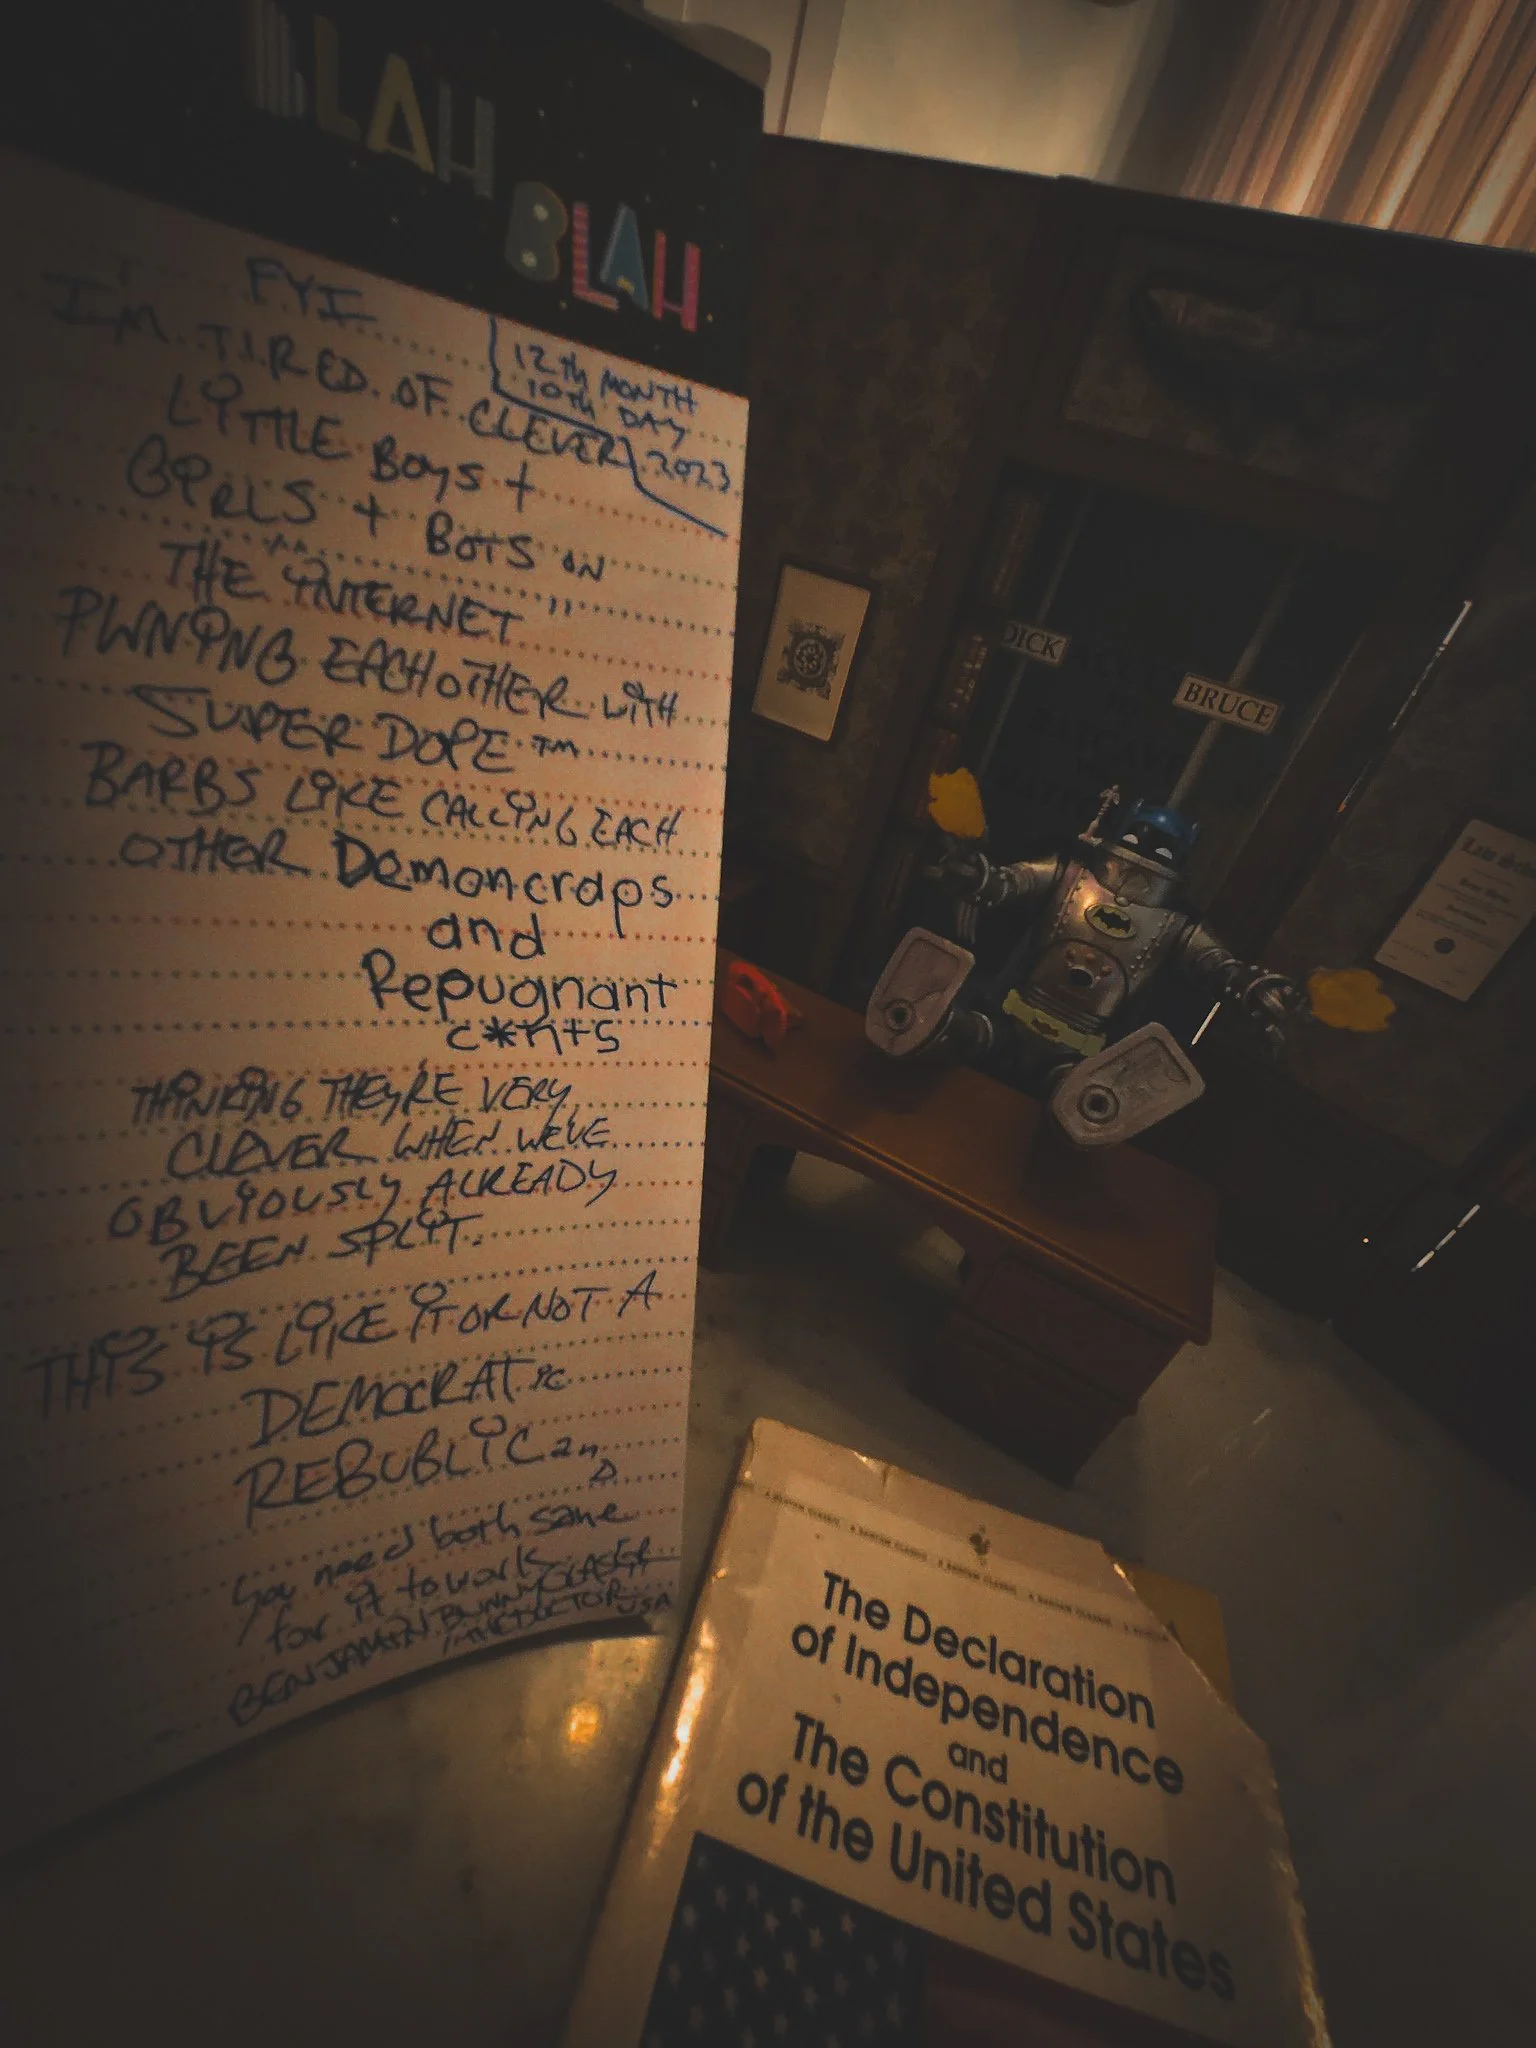 BLAH
BLAH
FYI
12th MONTH
10th DAY
2023
I'M TIRED OF CLEVER
LITTLE BOYS +
GIRLS + BOTS ON
THE INTERNET
"PWNING" EACHOTHER WITH
SUPER DOPE TM
BARBS LIKE CALLING EACH
OTHER Demoncraps
and
Repugnant
c*nts
THINKING THEY'RE VERY
CLEVER WHEN WE'VE
OBVIOUSLY ALREADY
BEEN SPLIT.
THIS IS LIKE IT OR NOT A
DEMOCRATic
REBUBLICan
you need both sane
for it to work
BENJAMIN BUNNY GLASER
/THEDOCTOR
USA
DICK
BRUCE
The Declaration
of Independence
and
The Constitution
of the United States